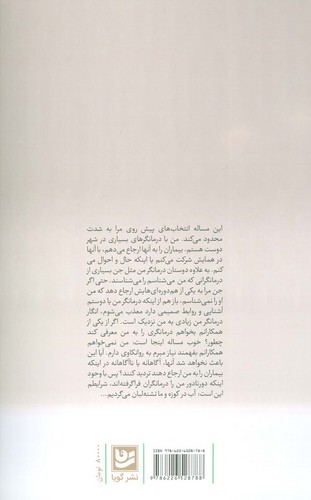 این مساله انتخاب‌های پیش روی مرا به شدت
محدود می‌کند. من با درمانگرهای بسیاری در شهر
دوست هستم. بیماران را به آنها ارجاع می‌دهم، با آنها
در همایش شرکت می‌کنم یا اینکه حال و احوال می
کنم. به علاوه دوستان درمانگر من مثل جن بسیاری از
درمانگرانی که من می‌شناسم را می‌شناسند. حتی اگر
جن مرا به یکی از هم‌دوره‌ای‌هایش ارجاع دهد که من
او را نمی‌شناسم، باز هم از اینکه درمانگر من با دوستم
آشنایی و روابط صمیمی دارد معذب می‌شوم. انگار
درمانگر من زیادی به من نزدیک است. اگر از یکی از
همکارانم بخواهم درمانگری را به من معرفی کند
چطور؟ خوب مساله اینجا است: من نمی‌خواهم
همکارانم بفهمند نیاز مبرم به روانکاوی دارم. آیا این
باعث نخواهد شد آنها، آگاهانه یا ناآگاهانه در اینکه
بیماران را به من ارجاع دهند تردید کنند؟ پس با وجود
اینکه دورتادور من را درمانگران فراگرفته‌اند، شرایطم
این است: آب در کوزه و ما تشنه‌لبان می‌گردیم...
ISBN: 978-622-6528-78-8
9 786226 528788
نشر گویا
۸۰۰۰۰ تومان